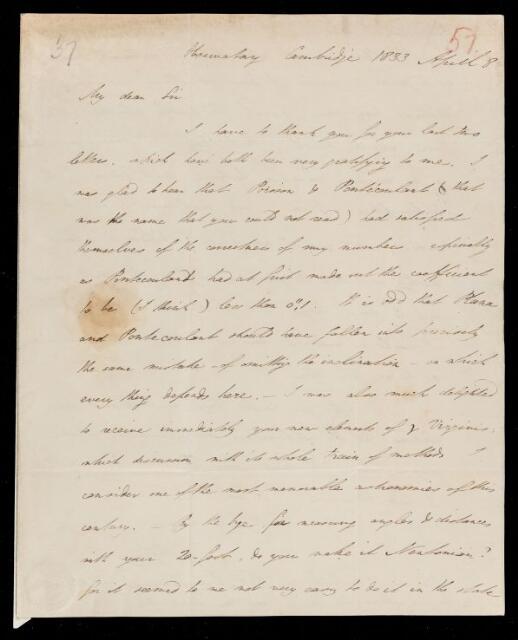 37
57
Observatory Cambridge 1833 April 8
My dear Sir
I have to thank you for your last two
letters, which have both been very gratifying to me. I
was glad to hear that Poisson & Pontécoulant (that
was the name that you could not read) had satisfied
themselves of the correctness of my numbers especially
as Pontecoulant had at first made out the coefficient
to be (I think) less than 0",1. It is odd that Plana
and Pontecoulant should have fallen into precisely
the same mistake - of omitting the inclination - on which
every thing depends here. - I was also much delighted
to receive immediately your new elements of γ Virginis,
which discussion with its whole train of methods I
consider one of the most memorable astronomies of this
century. - By the bye for measuring angles & distances
with your 20-foot, do you make it Newtonian?
for it seemed to me not very easy to do it in the state